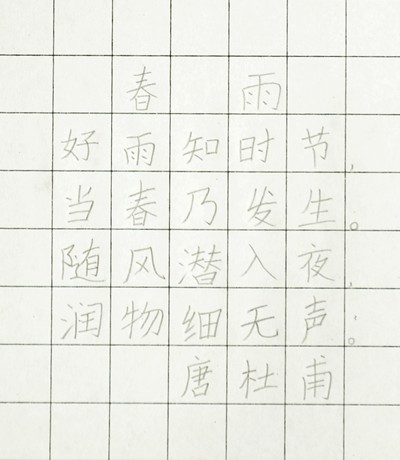 春 雨
好雨知时节,
当春乃发生。
随风潜入夜,
润物细无声。
唐杜甫